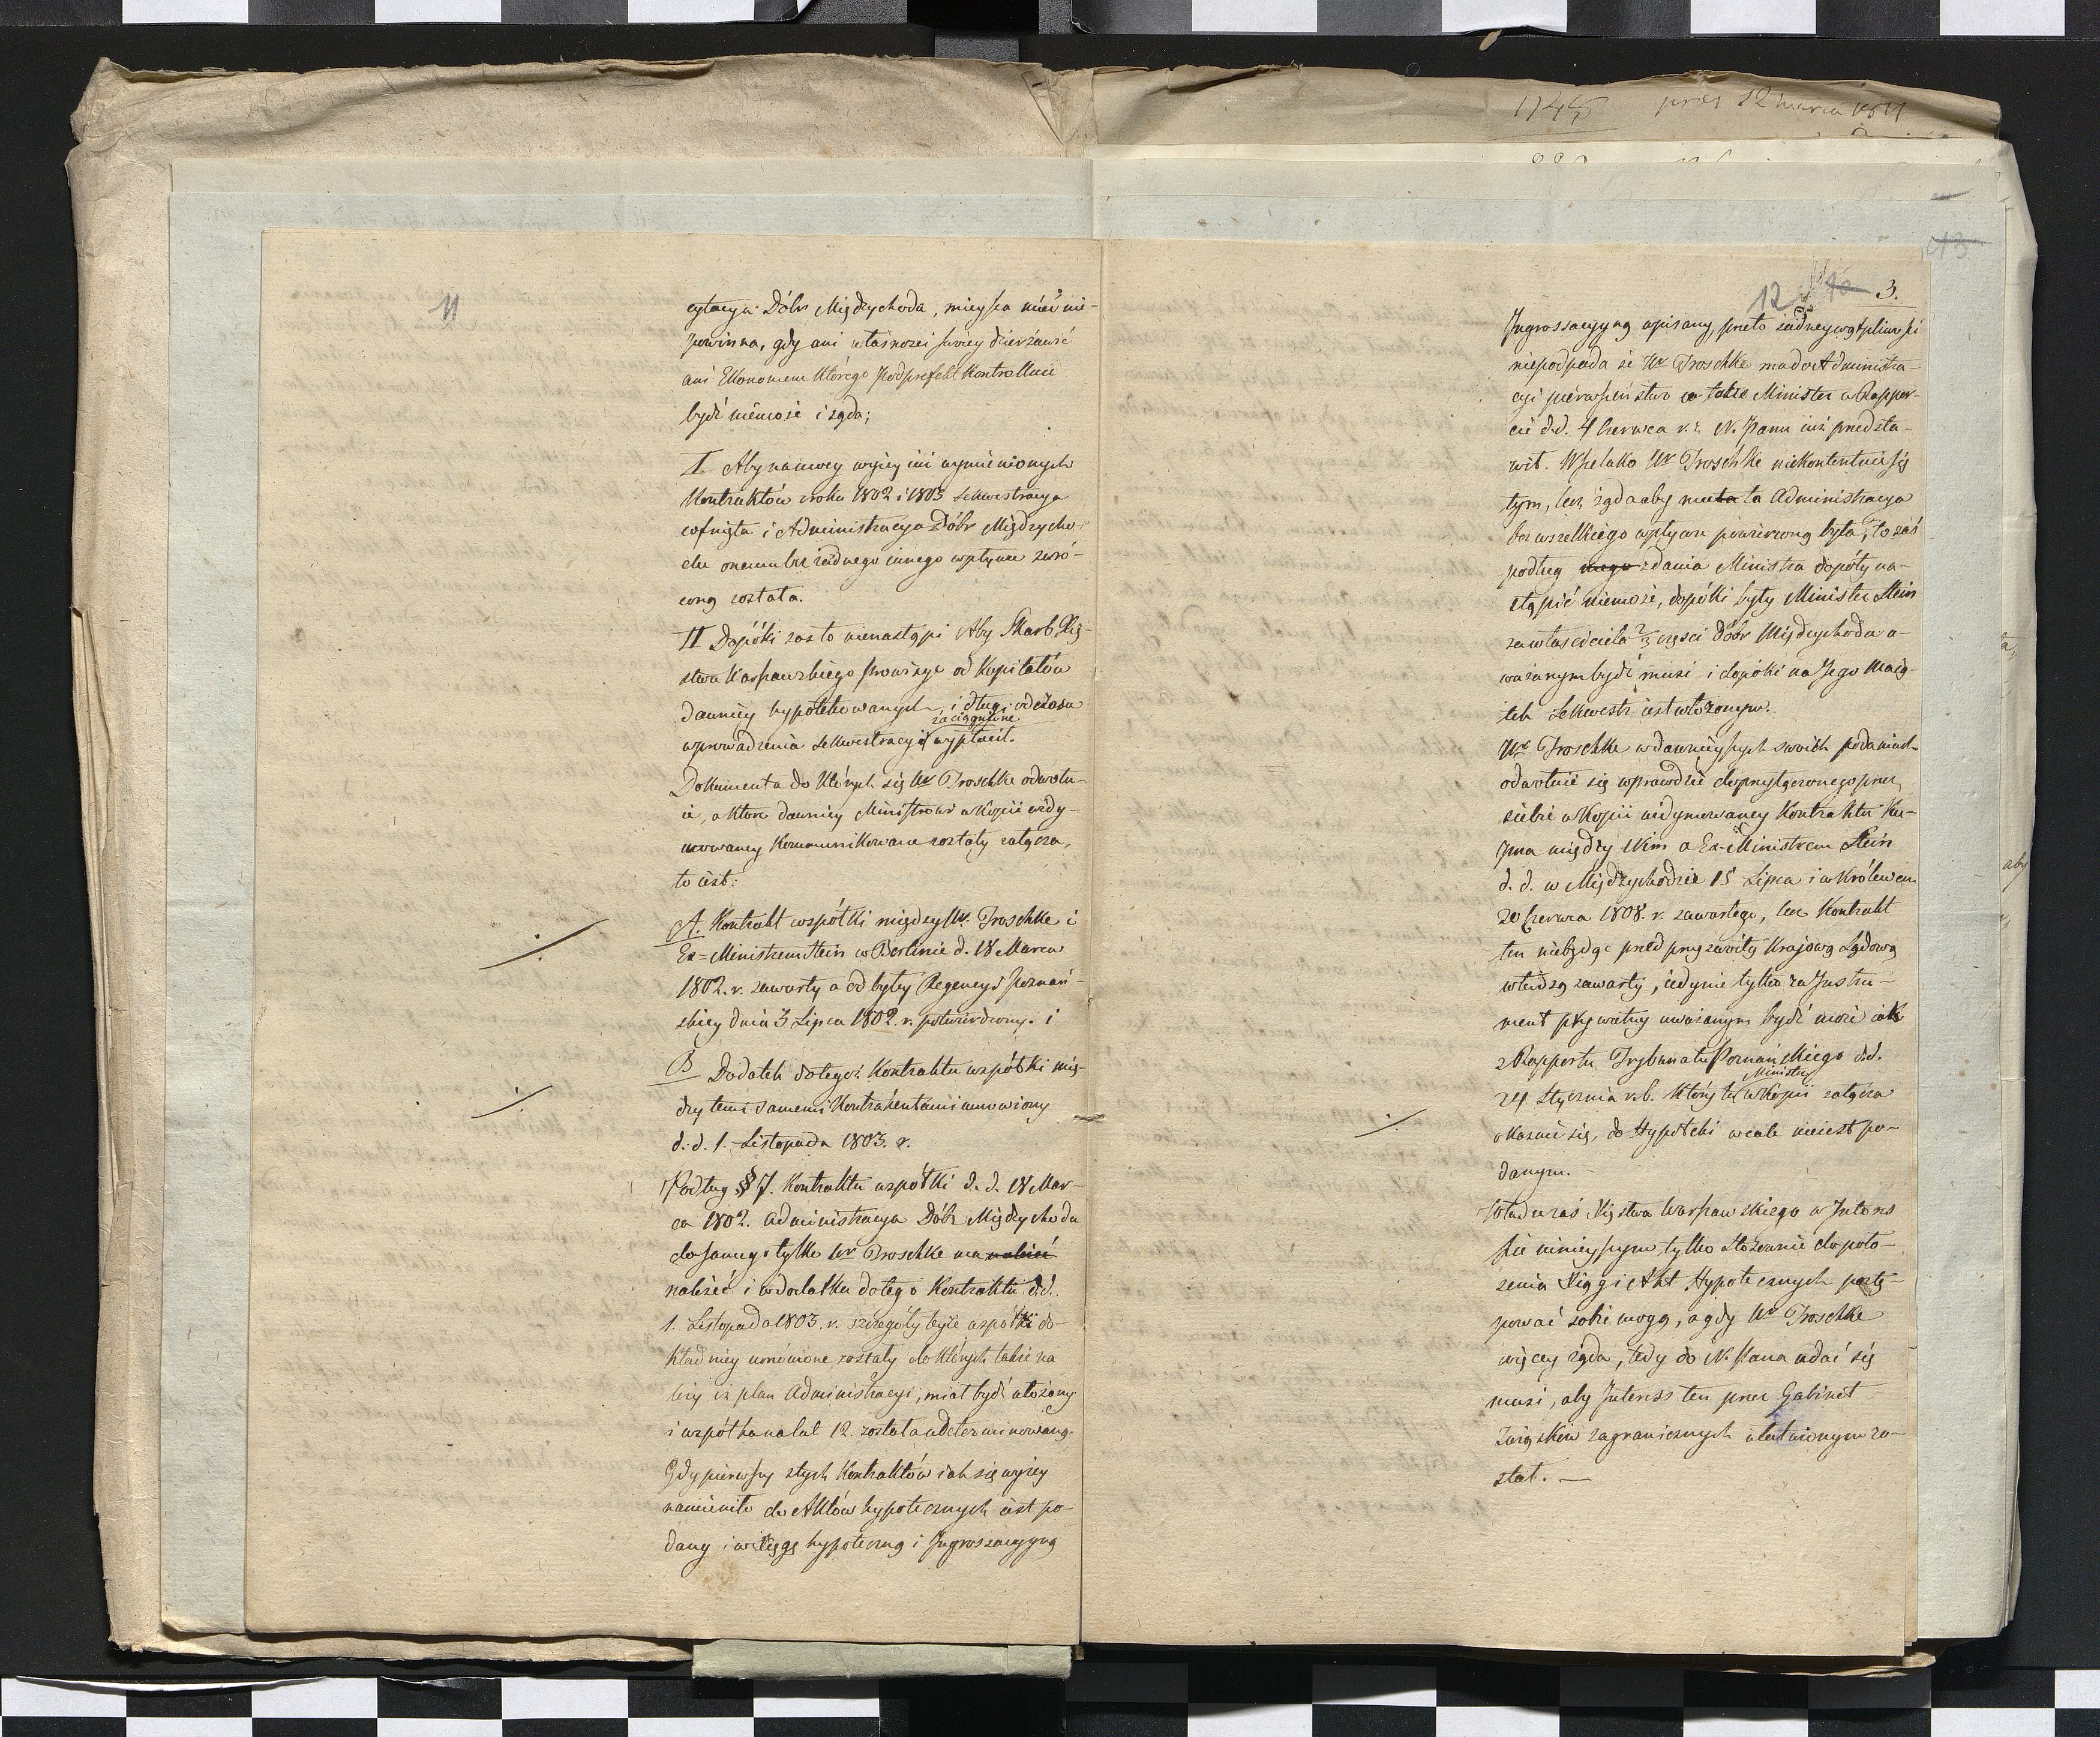 11
cytacya Dóbr Międzychoda, mieysca mieć nie-
powinna, gdy ani własności swoiey dzierżawić
ani Ekonomem którego Podprefekt Kontrolluie
bydź niemoże i żąda;
I. Aby na mocy wyżey iuż wymienionych
Kontraktów z roku 1802 i 1803 Sekwestracya
cofnięta i Administracya Dóbr Międzycho-
du onemu bez żadnego innego wpływu zwró-
coną została.
II Dopóki zaś to nienastąpi Aby Skarb Xię-
stwa Warszawskiego prowizye od Kapitałów
dawniey hypotekowanych, i długi od czasu
zaciągnione
wprowadzenia Sekwestracyi wypłacił.
Dokumenta do których się Ur Troschke odwołu-
ie, a które dawniey Ministrowi w Kopii widy-
mowaney kommunikowane zostały załącza,
to iest:
A. Kontrakt współki między Ur. Troschke i
Ex-Ministrem Stein w Berlinie d. 18 Marca
1802. r. zawarty a od byłey Regencyi Poznań-
skiey dnia 3 Lipca 1802. r. potwierdzony. i
B Dodatek do tegoż Kontraktu współki mię-
dzy temi samemi Kontrahentami umowiony
d. d. 1. Listopada 1803. r.
Podług § 7. Kontraktu współki d. d. 18 Mar-
ca 1802. administracya Dóbr Międzychodu
do samego tylko Ur Troschke ma należeć
należeć i w dodatku do tego Kontraktu d.d.
1. Listopada 1803. r. szczegóły teyże współki do-
kładniey umówione zostały do których także na
leży iż plan Administracyi, miał bydź ułożony
i współka na lat 12. została udeterminowaną.
Gdy pierwszy z tych Kontraktów iak się wyżey
namieniło do Aktów hypotecznych iest po-
dany i w Xięgę hypoteczną i Ingrossacyyną
1745 prез 12 marca 1811
12 3.
Ingrossacyyną wpisany, przeto żadney wątpliwości
niepodpada że Ur Troschke ma do Administra-
cyi pierwszeństwo co także Minister w Rappor-
cie d.d. 4 Czerwca r. z. N. Panu iuż przedsta-
wił. Wszelako Ur Troschke niekontentuie się
tym, lecz żąda aby mu ta ta Administracya
bez wszelkiego wpływu powierzoną była, to zaś
podług mego zdania Ministra dopóty na-
stąpić niemoże, dopóki były Minister Stein
za właściciela 2/3 części Dóbr Międzychoda u-
ważanym bydź musi i dopóki na Jego maią-
tek Sekwestr iest włożonym.
Ur Troschke w dawnieyszych swoich podaniach
odwołuie się wprawdzie do przyłączonego przez
siebie w Kopii widymowaney Kontraktu Ku-
pna między Nim a Ex-Ministrem Stein
d. d. w Międzychodzie 15 Lipca i w Królewcu
20 Czerwca 1808. r. zawartego, lecz Kontrakt
ten niebędąc przed przyzwoitą Krajową Sądową
władzą zawarty, iedynie tylko za Instru-
ment prywatny uważanym bydź może iak
z Rapportu Trybunału Poznańskiego d.d.
Minister
24 Stycznia r.b. który tu w Kopii załącza
okazuie się, do Hypoteki wcale nieiest po-
danym.
Władza zaś Xięstwa Warszawskiego w Interes
sie ninieyszym tylko stosownie do poło-
żenia Xiąg i Akt Hypotecznych postę-
pować sobie mogą, a gdy Ur Troschke
więcey żąda, tedy do N. Pana udać się
musi, aby Interess ten przez Gabinet
Związków zagranicznych ułatwionym zo-
stał. —
aby